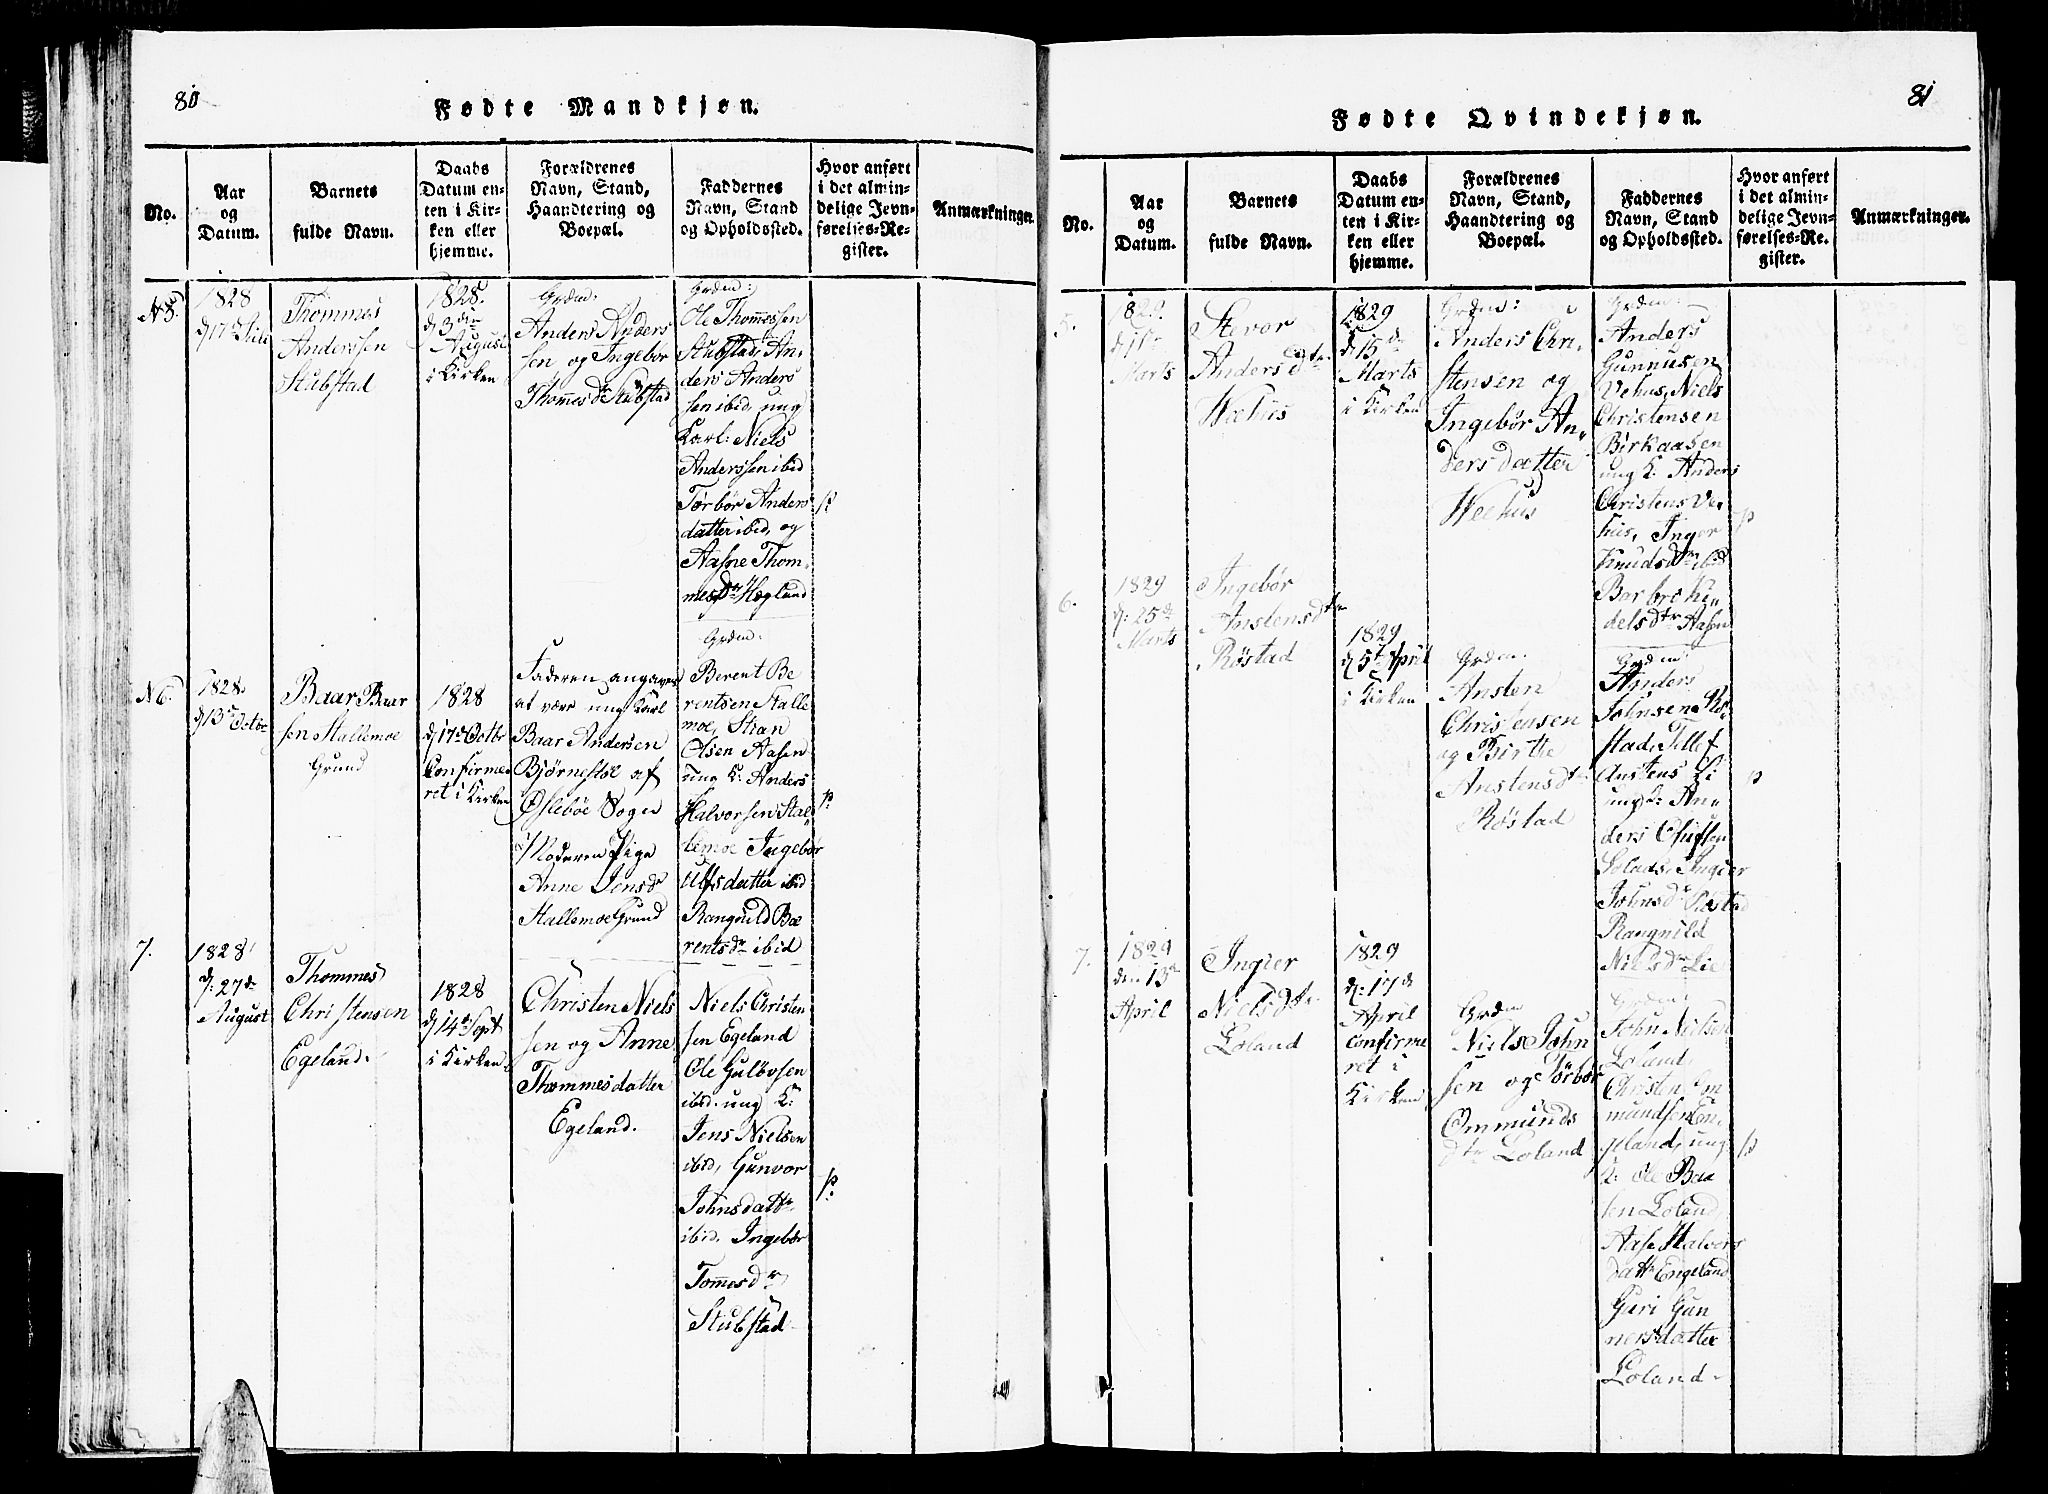 80
Fødte Mandkjøn.
No.
Aar
og
Datum.
Barnets
fulde Navn.
Daabs
Datum en-
ten i Kir-
ken eller
hjemme.
Forældrenes
Navn, Stand,
Haandtering og
Boepæl.
Faddernes
Navn, Stand
og Opholdssted.
Hvor anført
i det almin-
delige Jevn-
førelses-Re-
gister.
Anmærkninger.
N 5.
1828
d 17de Juli
Thommes
Anderssen
Stubstad
1828.
d 3die
August
i Kirken
Grdm:
Anders Anders
sen og Ingebør
Thommesdr Stubstad
Grdm:
Ole Thommessen
Stubstad, An,
ders Anders
sen ibid, ung
Karl: Niels
Anderssen ibid
Tørbør Anders
datter ibid, og
Aasne Thom,
mesdr Høglund
p
N 6.
1828.
d 13de Octbr
Baar Baar
sen Stallemoe
Grund
1828
d 17de Octbr
Confirme,
ret i Kirken
Faderen angaves
at være ung Karl
Baar Andersen
Bjørnestøl af
Øslebøe Sogn
Moderen Pige
Anne Jensdr
Stallemoe Grund
Grdm:
Berent Be
rentsen Stalle
moe, Stian
Olsen Aasen
ung K: Anders
Halvorsen Stal,
lemoe Ingebør
Ulfsdatter ibid
Rangnild Be
rentsdr ibid
p.
7.
1828
d: 27de
August
Thommes
Christensen
Egeland.
1828
d 14de Sept
i Kirken
Christen Niels
sen og Anne
Thommesdatter
Egeland.
Niels Christen
sen Egeland
Ole Gulovsen
ibid. ung K:
Jens Nielsen
ibid, Gunvor
Johnsdattr
ibid. Ingebør
Tommesdr
Stubstad
p.
81
Fødte Qvindekjøn.
No.
Aar
og
Datum.
Barnets
fulde Navn.
Daabs
Datum en-
ten i Kir-
ken eller
hjemme.
Forældrenes
Navn, Stand,
Haandtering og
Boepæl.
Faddernes
Navn, Stand
og Opholdssted.
Hvor anført
i det almin-
delige Jevn-
førelses-Re-
gister.
Anmærkninger.
5.
1829.
Marts
Anders dtr
Wehus
1829
d 15de
Marts
i Kirken
Grdm:
Anders Chri,
stensen og
Ingebør An,
dersdatter
Weehus
Grdm:
Anders
Gunnusen
Vehus, Niels
Christensen
Birkaasen
ung K: Anders
Christens Ve,
hus, Inger
Knudsdtr ibid
Barbro Ki,
delsdtr Aasen
p
6.
1829
d: 25de
Marts
Ingebør
Anstensdtr
Røstad
1829
d 5te April
i Kirken
Grdm:
Ansten
Christensen
og Birthe
Anstensdtr
Røstad
Grdm:
Anders
Johnsen Rø,
stad, Tellef
Anstens Li
ung K: An,
ders
Johnsdr
Rangnild
Nielsdr Lie
p
7.
1829
den 13de
April
Ingier
Nielsdtr.
Loland
1829
d: 17de
April
confirme
ret i
Kirken
Grdm
Niels John
sen og Tørbør
Ommunds
dtr Loland
Grdm:
John Nielsen
Loland,
Christen Om
mundsen En,
geland, ung
K: Ole Baa
sen Loland,
Aase Halvors
dattr Engeland
Guri Gun
nersdatter
Loland.
p